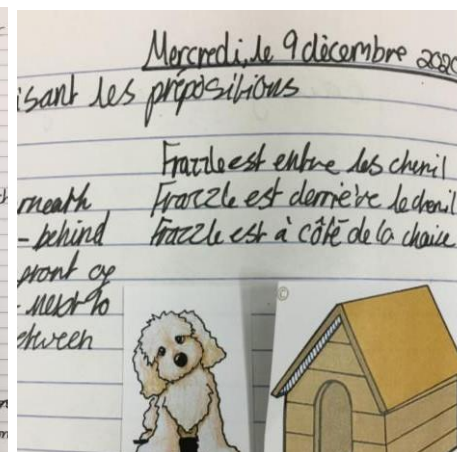 Mercredi, le 9 décembre 2020
isant les prépositions
Frazzle est entre les chenil
rneath Frazzle est derrière le chenil
- behind Frazzle est à côté de la chaise
front of
- next to
etween
©